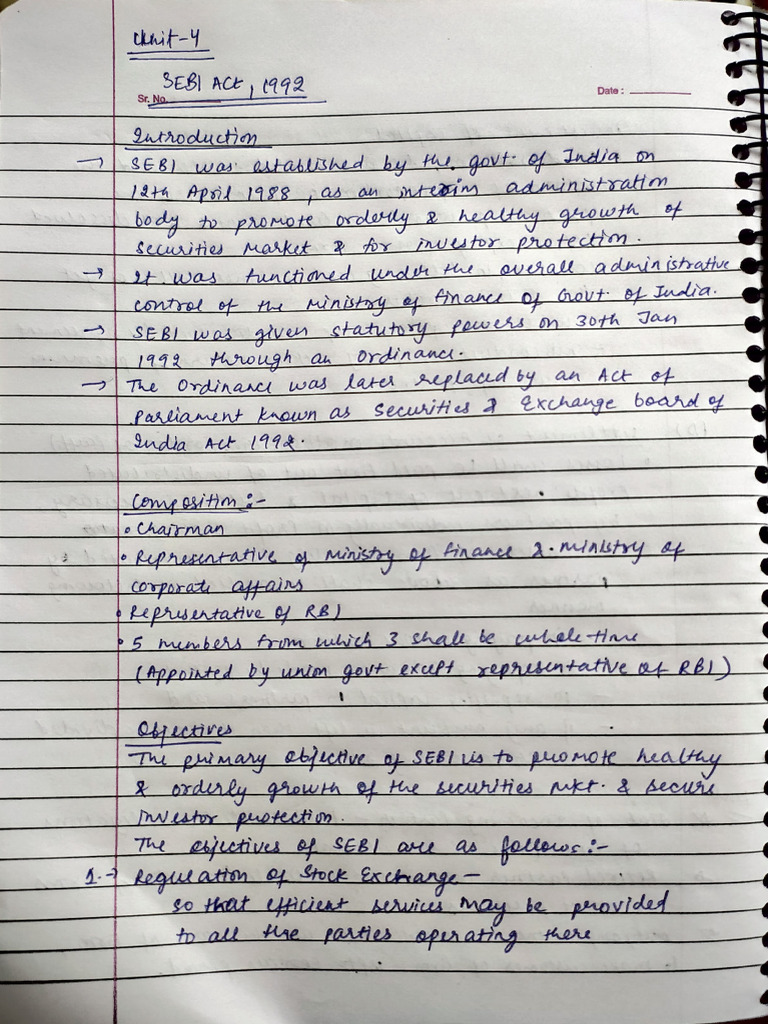 Unit-4
SEBI ACt, 1992
Sr. No.
Date :
Introduction
→ SEBI was established by the govt. of India on
12th April 1988, as an interim administration
body to promote orderly & healthy growth of
securities market & for investor protection.
→ It was functioned under the overall administrative
control of the ministry of finance of Govt. of India.
→ SEBI was given statutory powers on 30th Jan
1992 through an ordinance.
→ The Ordinance was later replaced by an Act of
parliament known as Securities & Exchange board of
India Act 1992.
Composition :-
• Chairman
• Representative of ministry of finance & ministry of
corporate affairs
• Representative of RBI
• 5 members from which 3 shall be whole-time
(Appointed by union govt except representative of RBI)
Objectives
The primary objective of SEBI is to promote healthy
& orderly growth of the securities mkt. & secure
investor protection.
The objectives of SEBI are as follows:-
1.→ Regulation of Stock Exchange -
so that efficient services may be provided
to all the parties operating there